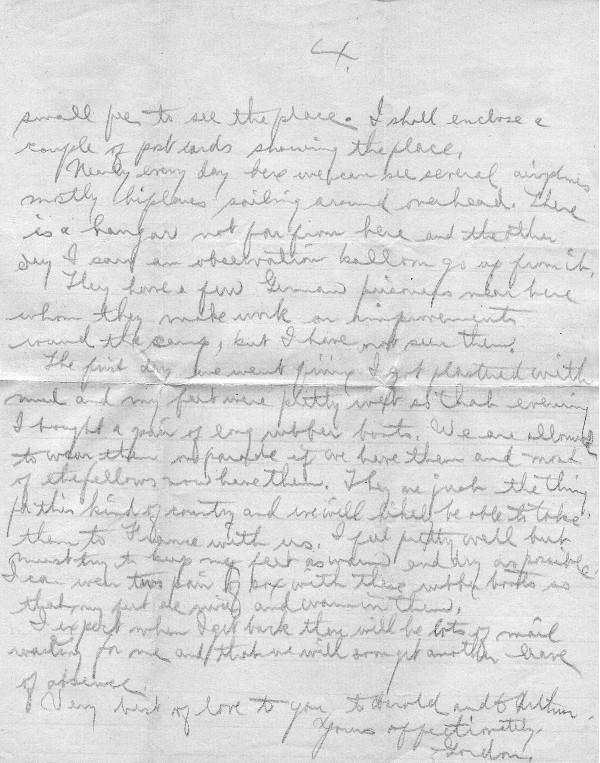 4.
small fee to see the place. I shall enclose a
couple of post cards showing the place.
Nearly every day here we can see several airoplanes
mostly biplanes sailing around overhead. There
is a hangar not far from here and the other
day I saw an observation balloon go up from it.
They have a few German prisoners near here
whom they make work on improvements
round the camp, but I have not seen them.
The first day we went firing I got plastered with
mud and my feet were pretty wet so that evening
I bought a pair of long rubber boots. We are allowed
to wear them on parade if we have them and most
of the fellows now have them. They are just the thing
for this kind of country and we will likely be able to take
them to France with us. I feel pretty well but
must try to keep my feet as warm and dry as possible.
I can wear two pair of sox with these rubber boots so
that my feet are nice and warm in them.
I expect when I get back they will be lots of mail
waiting for me and that we will soon get another leave
of absence.
Very best of love to you, to Harold and to Arthur.
Yours affectionately
Gordon.